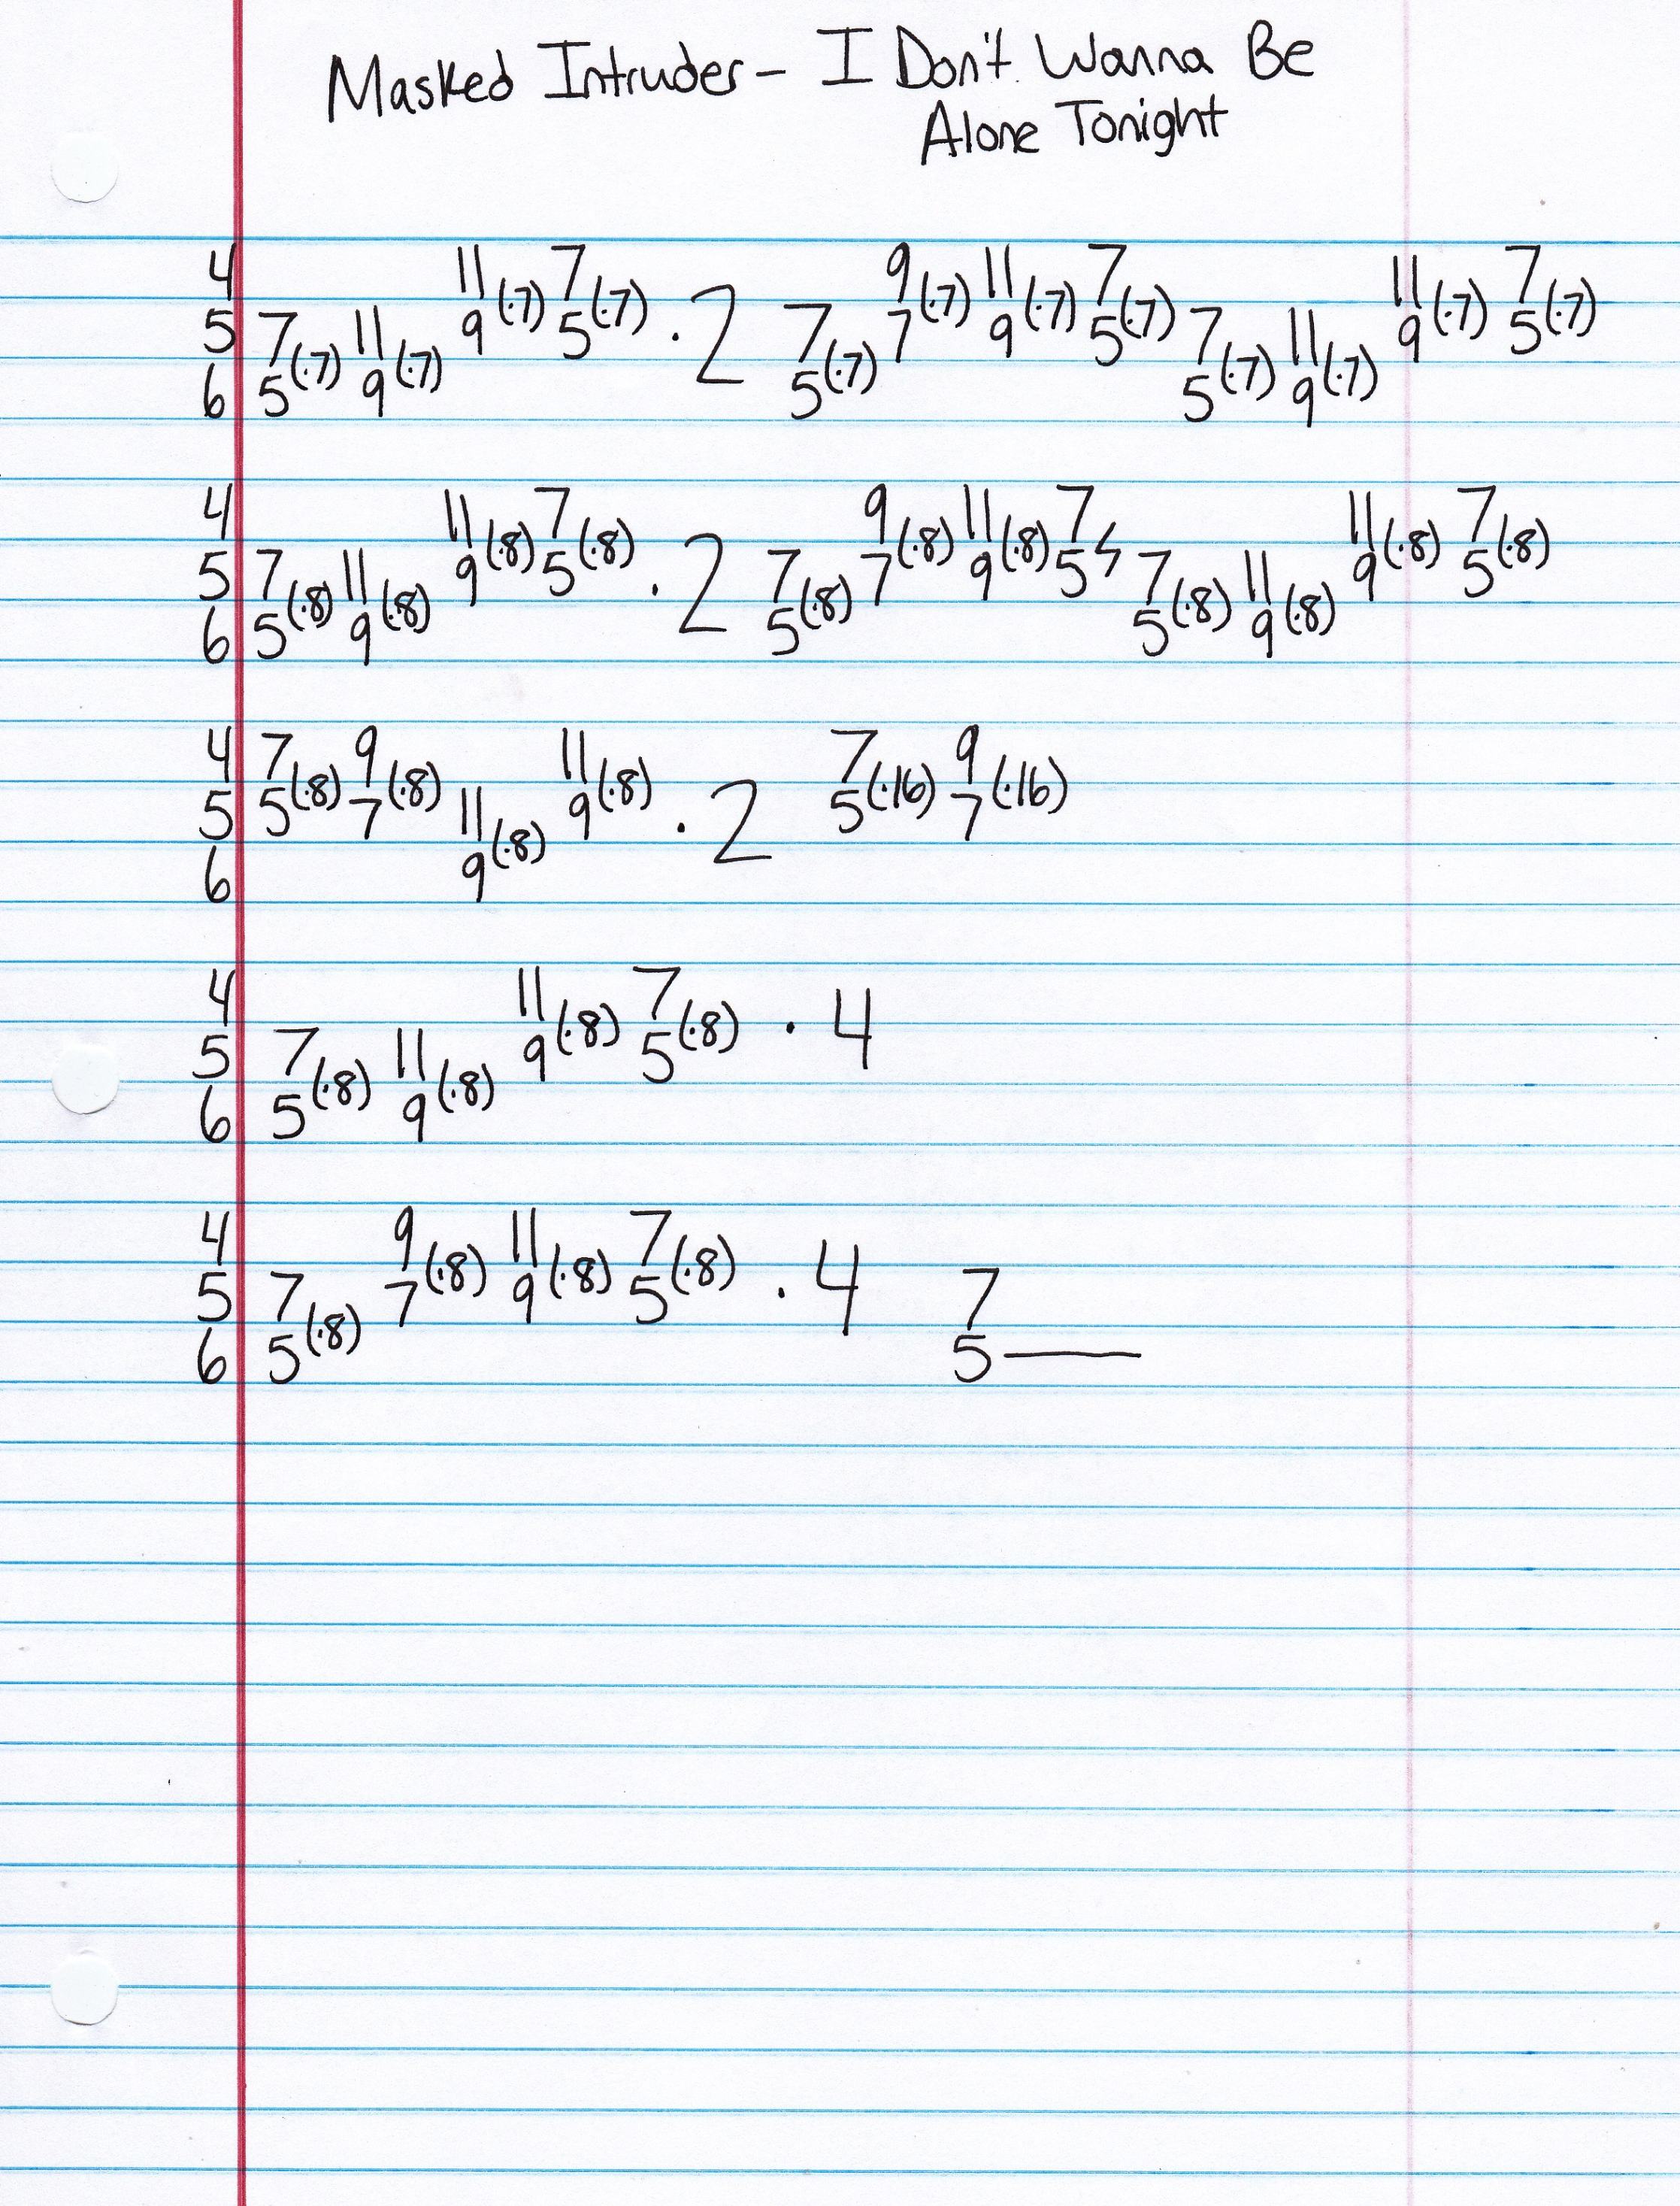 Masked Intruder – I Don't Wanna Be
Alone Tonight
4 11 7 9 11 7 11 7
5 7 11 9(·7) 5(·7) · 2 7 7(·7) 9(·7) 5(·7) 7 11 9(·7) 5(·7)
6 5(·7) 9(·7) 5(·7) 5(·7) 9(·7)
4 11 7 9 11 7 11 7
5 7 11 9(·8) 5(·8) · 2 7 7(·8) 9(·8) 5 𝄽 7 11 9(·8) 5(·8)
6 5(·8) 9(·8) 5(·8) 5(·8) 9(·8)
4 7 9 11 7 9
5 5(·8) 7(·8) 11 9(·8) · 2 5(·16) 7(·16)
6 9(·8)
4 11 7
5 7 11 9(·8) 5(·8) · 4
6 5(·8) 9(·8)
4 9 11 7
5 7 7(·8) 9(·8) 5(·8) · 4 7
6 5(·8) 5—